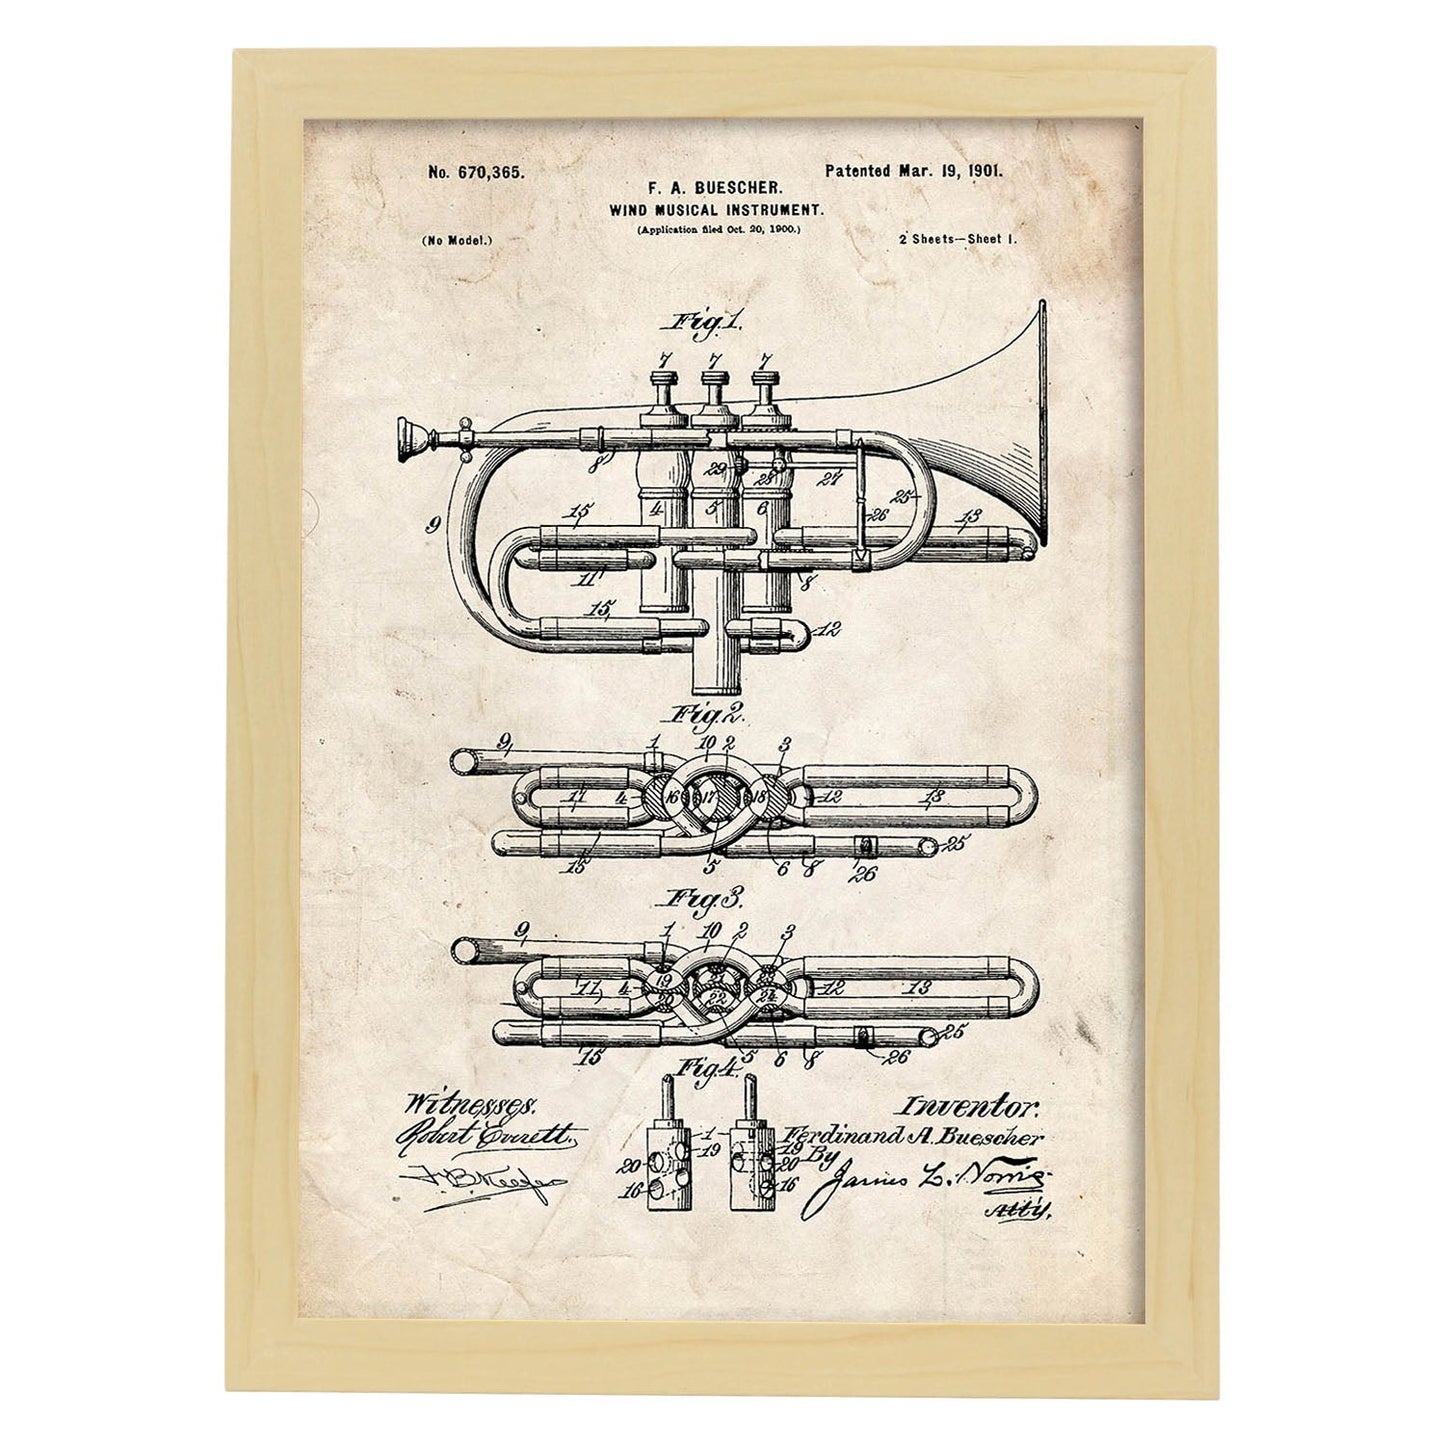 No. 670,365.
Patented Mar. 19, 1901.
F. A. BUESCHER.
WIND MUSICAL INSTRUMENT.
(Application filed Oct. 20, 1900.)
(No Model.)
2 Sheets—Sheet 1.
Fig.1.
7 7 7
8 29 28 27 25
9 15 4 5 6 26 13
11 8
15 12
Fig.2.
9 1 10 2 3
11 4 16 17 18 12 13
15 5 6 8 26 25
Fig.3.
9 1 10 2 3
11 4 19 20 21 22 23 24 12 13
15 5 6 8 26 25
Fig.4.
1
20 19 19 20
16 16
Witnesses.
Robert Everett.
Inventor.
Ferdinand A. Buescher
By
James L. Norris
Atty.